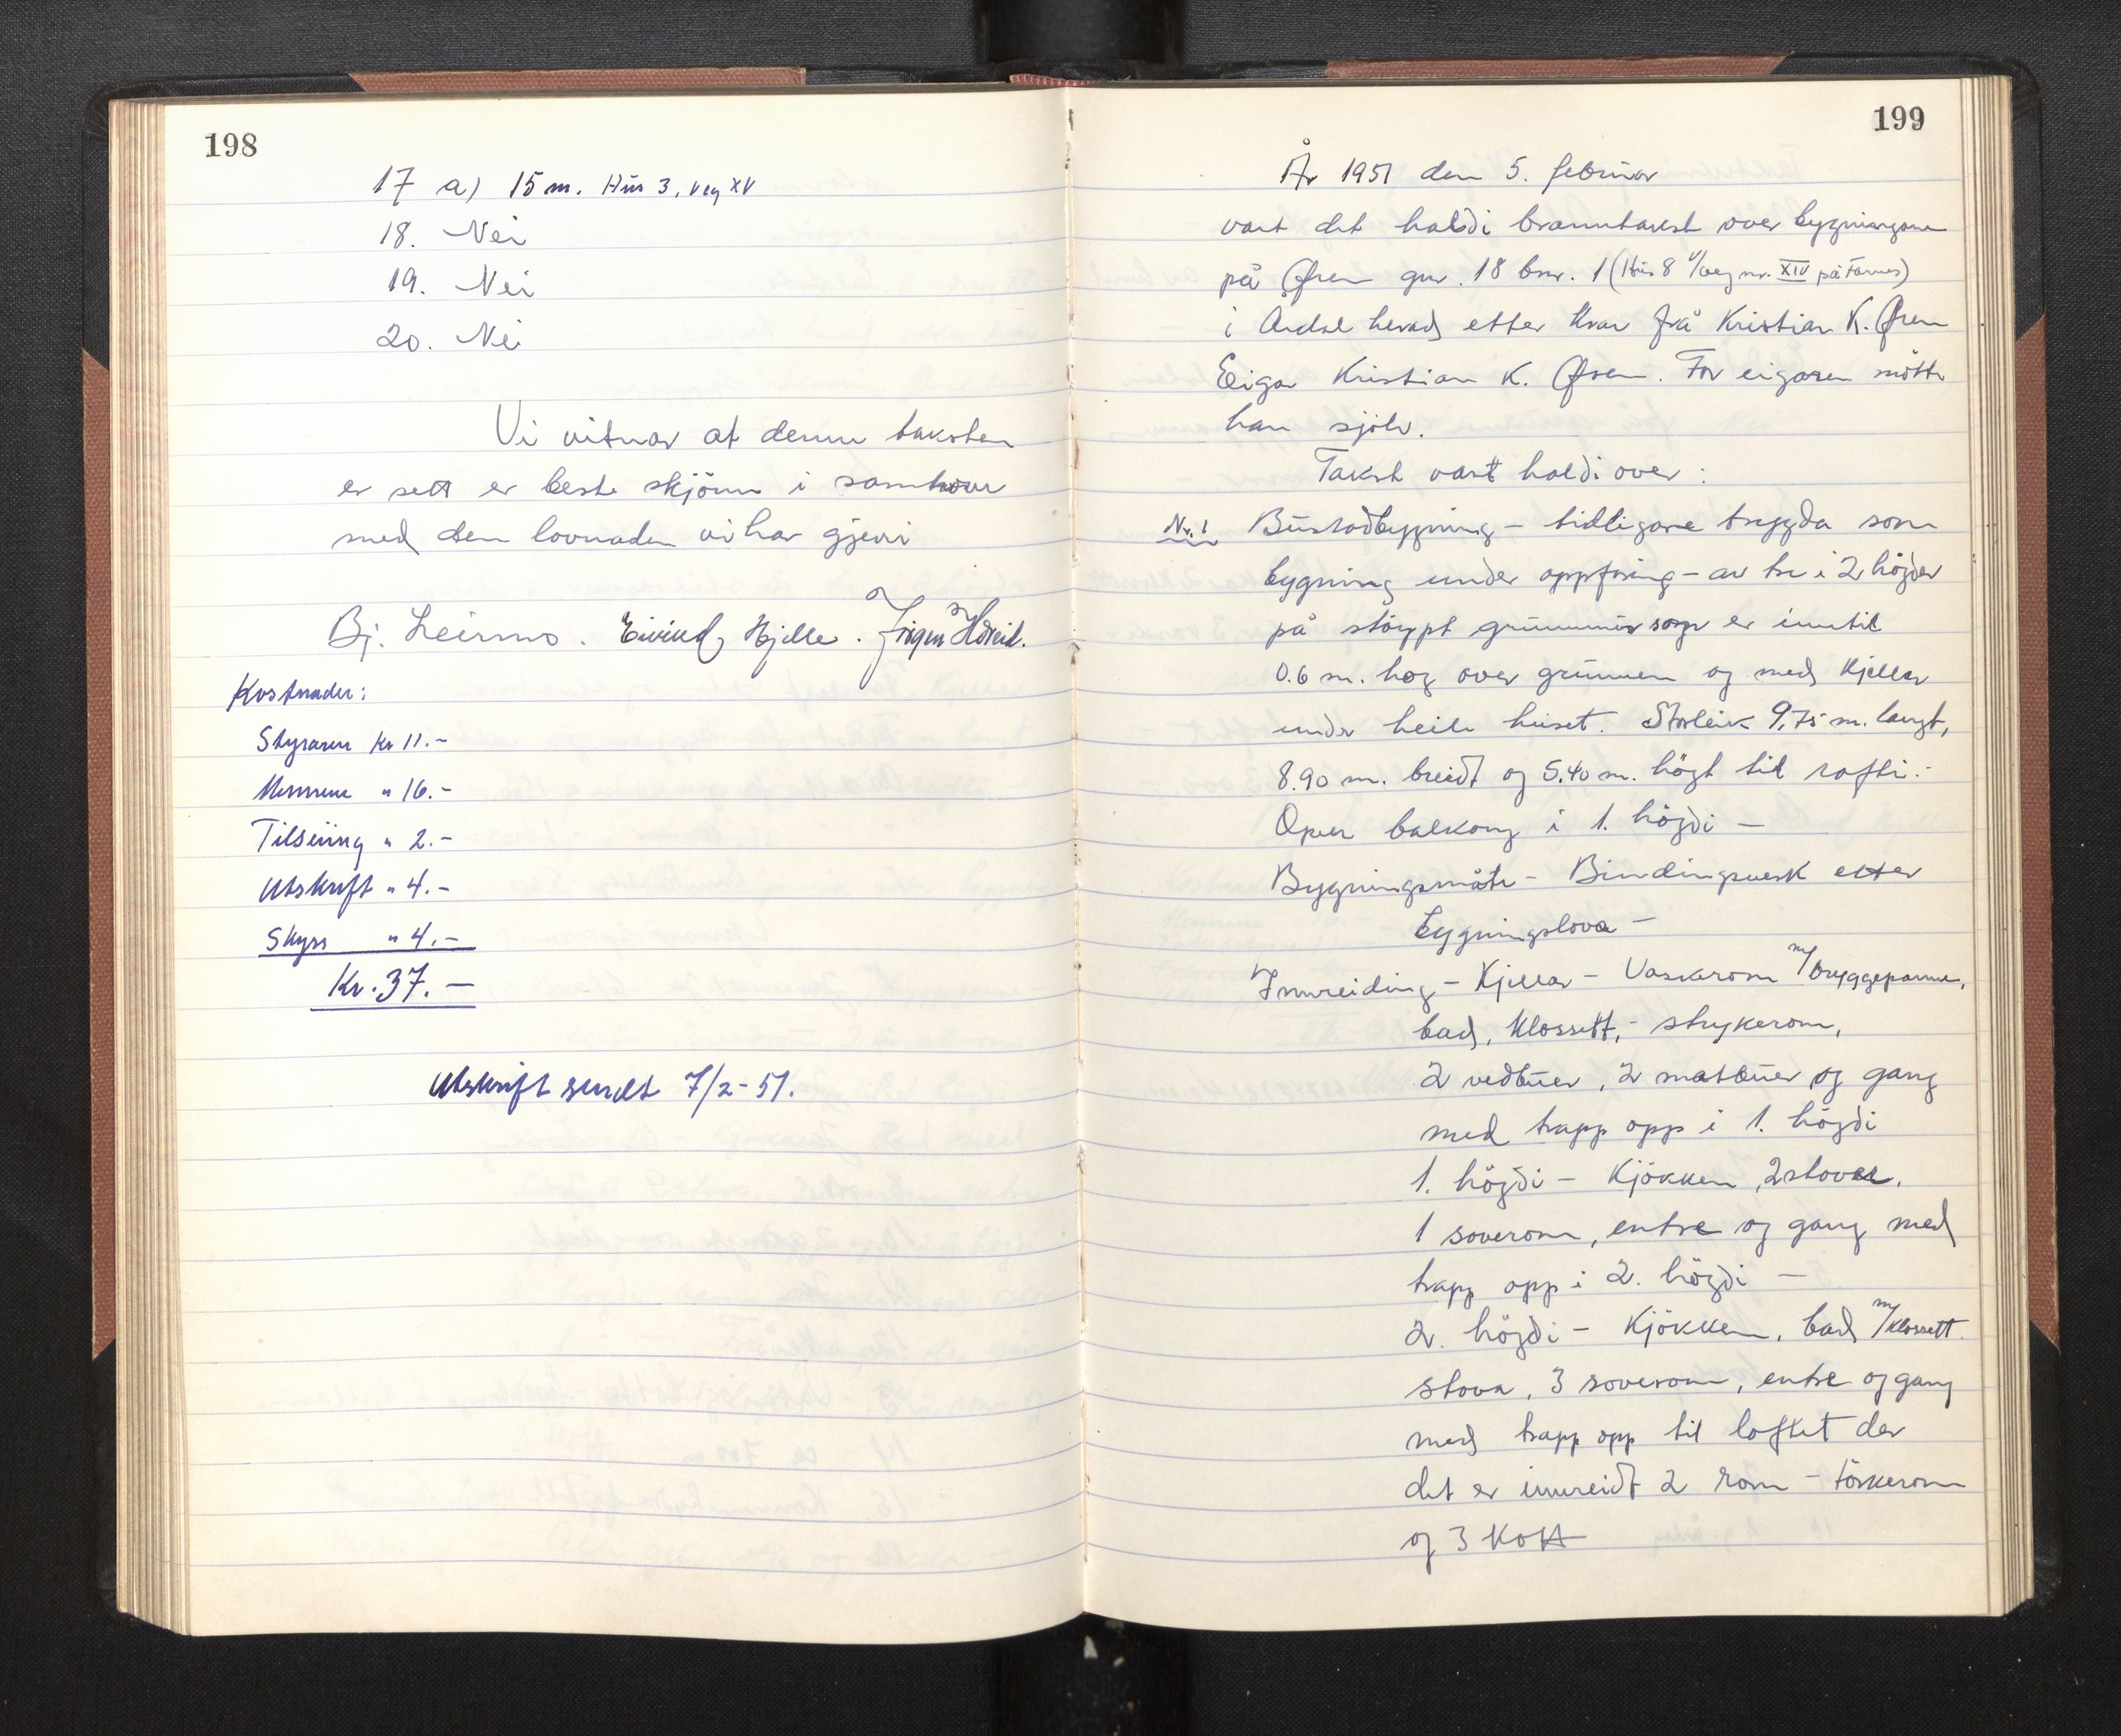 198
17 a) 15 m. Hus 3, veg XV
18. Nei
19. Nei
20. Nei
Vi vitnar at denne taksten
er sett er beste skjönn i samhøve
med den lovnaden vi har gjevi
Bj. Leirmo. Eivind Hjelle. Jørgen Hæreid.
Kostnader:
Styraren kr 11.-
Mennene " 16.-
Tilseing " 2.-
Utskrift " 4.-
Skyss " 4.-
Kr. 37.-
Utskrift sendt 7/2-51.
199
År 1951 den 5. februar
vart det haldi branntakst over bygningane
på Øren gnr. 18 bnr. 1 (Hus 8 v/veg nr. XIV på Farnes)
i Årdal herad etter krav frå Kristian K. Øren
Eigar Kristian K. Øren. For eigaren mötte
han sjölv.
Takst vart haldi over:
Nr. 1 Bustadbygning - tidligare trygda som
bygning under oppföring - av tre i 2 högder
på stöypt grunnmur som er inntil
0.6 m. høg over grunnen og med kjellar
under heile huset. Storleik 9,75 m. langt,
8.90 m. breidt og 5.40 m. högt til rafti.-
Open balkong i 1. högdi -
Bygningsmåte - Bindingsverk etter
bygningslova -
Innreiding - Kjellar - Vaskerom m/bryggepanne,
bad, klossett, - strykerom,
2 vedbuer, 2 matbuer og gang
med trapp opp i 1. högdi
1. högdi - Kjökken, 2 stover,
1 soverom, entre og gang med
trapp opp i 2. högdi -
2. högdi - Kjökken, bad m/klossett.
stova, 3 soverom, entre og gang
med trapp opp til loftet der
det er innreidt 2 rom - törkerom
og 3 kott